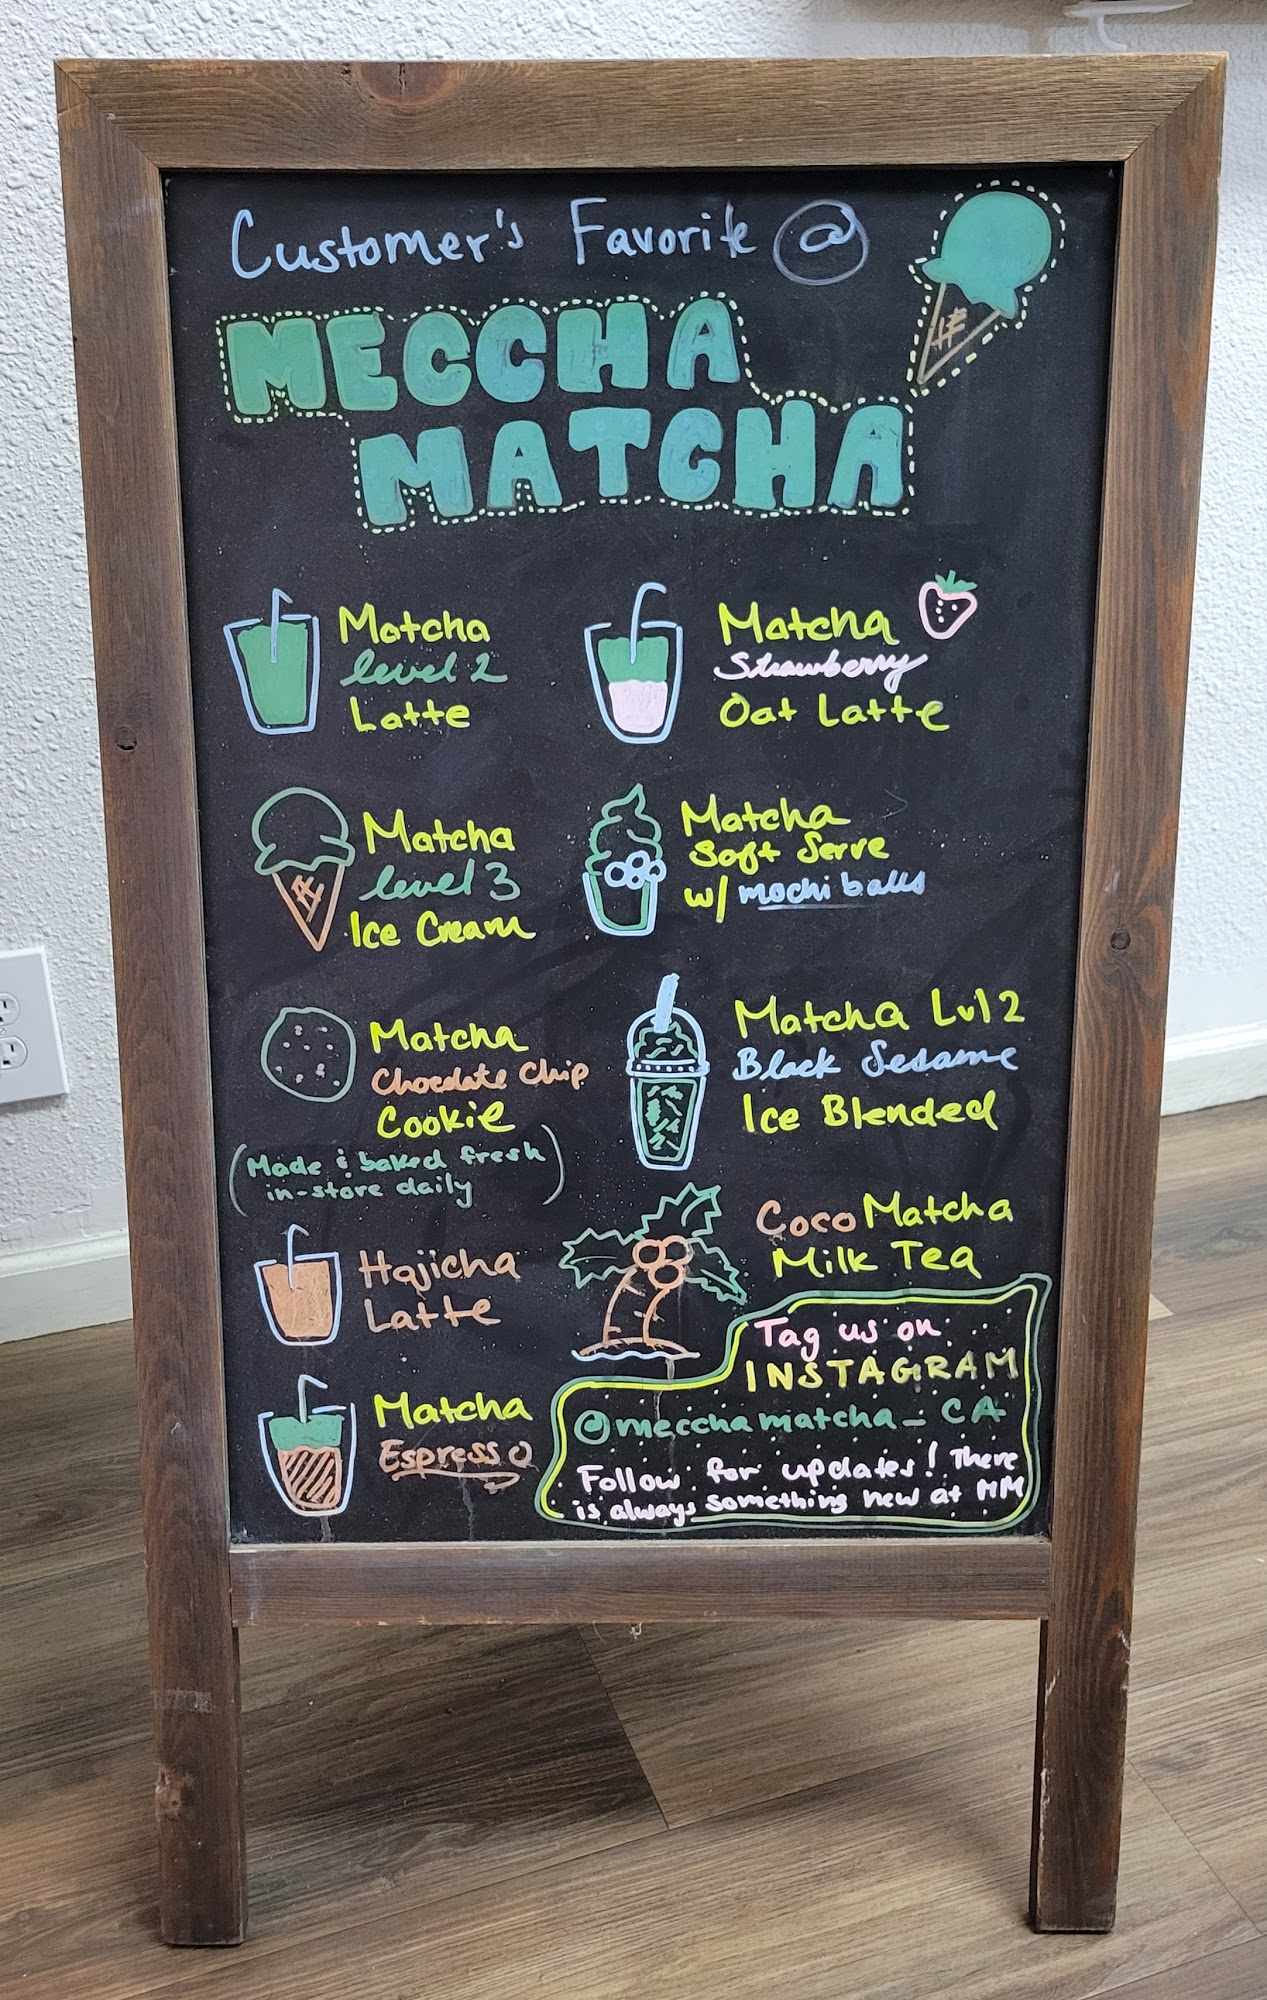 Customer's Favorite @
MECCHA
MATCHA
Matcha
level 2
Latte
Matcha
Strawberry
Oat Latte
Matcha
level 3
Ice Cream
Matcha
Soft Serve
w/ mochi balls
Matcha
Chocolate Chip
Cookie
(Made & baked fresh
in-store daily)
Matcha Lvl 2
Black Sesame
Ice Blended
Hojicha
Latte
Coco Matcha
Milk Tea
Matcha
Espresso
Tag us on
INSTAGRAM
@mecchamatcha_CA
Follow for updates! There
is always something new at MM